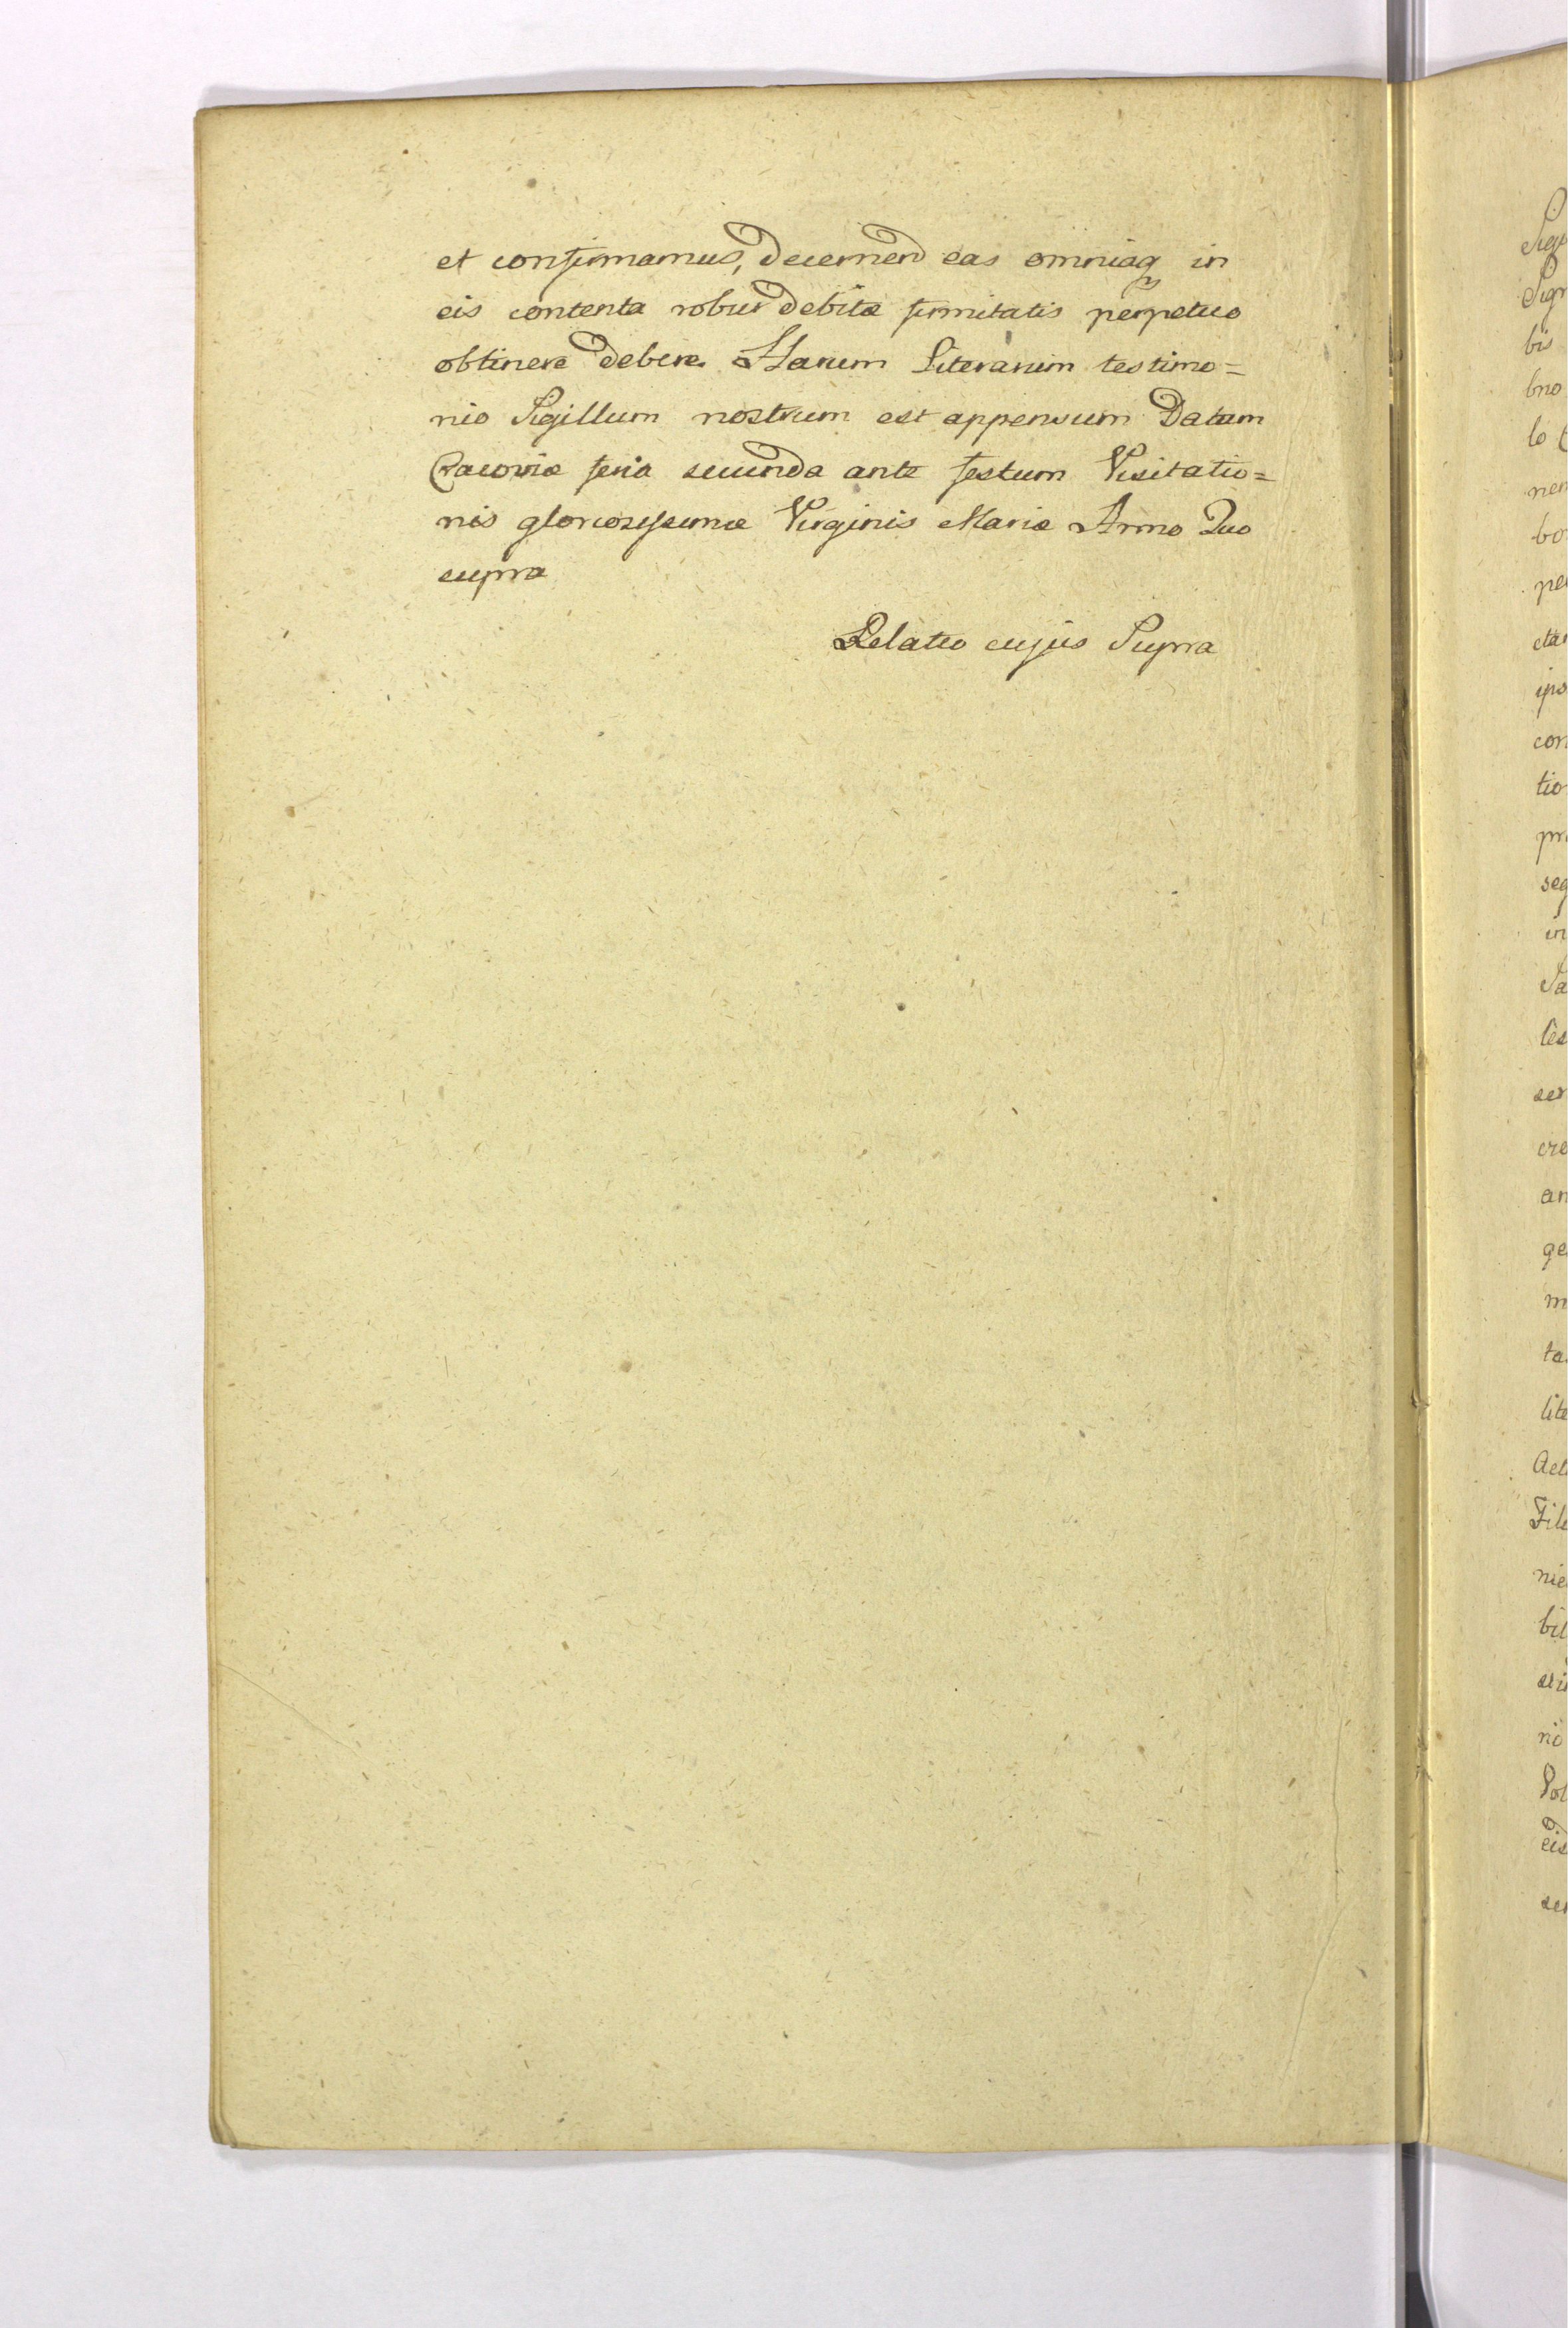 et confirmamus, decernend eas omniaq in
eis contenta robur debitæ firmitatis perpetuo
obtinere debere Harum Literarum testimo=
nio Sigillum nostrum est appensum Datum
Cracoviæ feria secunda ante festum Visitatio=
nis gloriosissimæ Virginis Mariæ Anno Quo
supra
Relatio cujus Supra